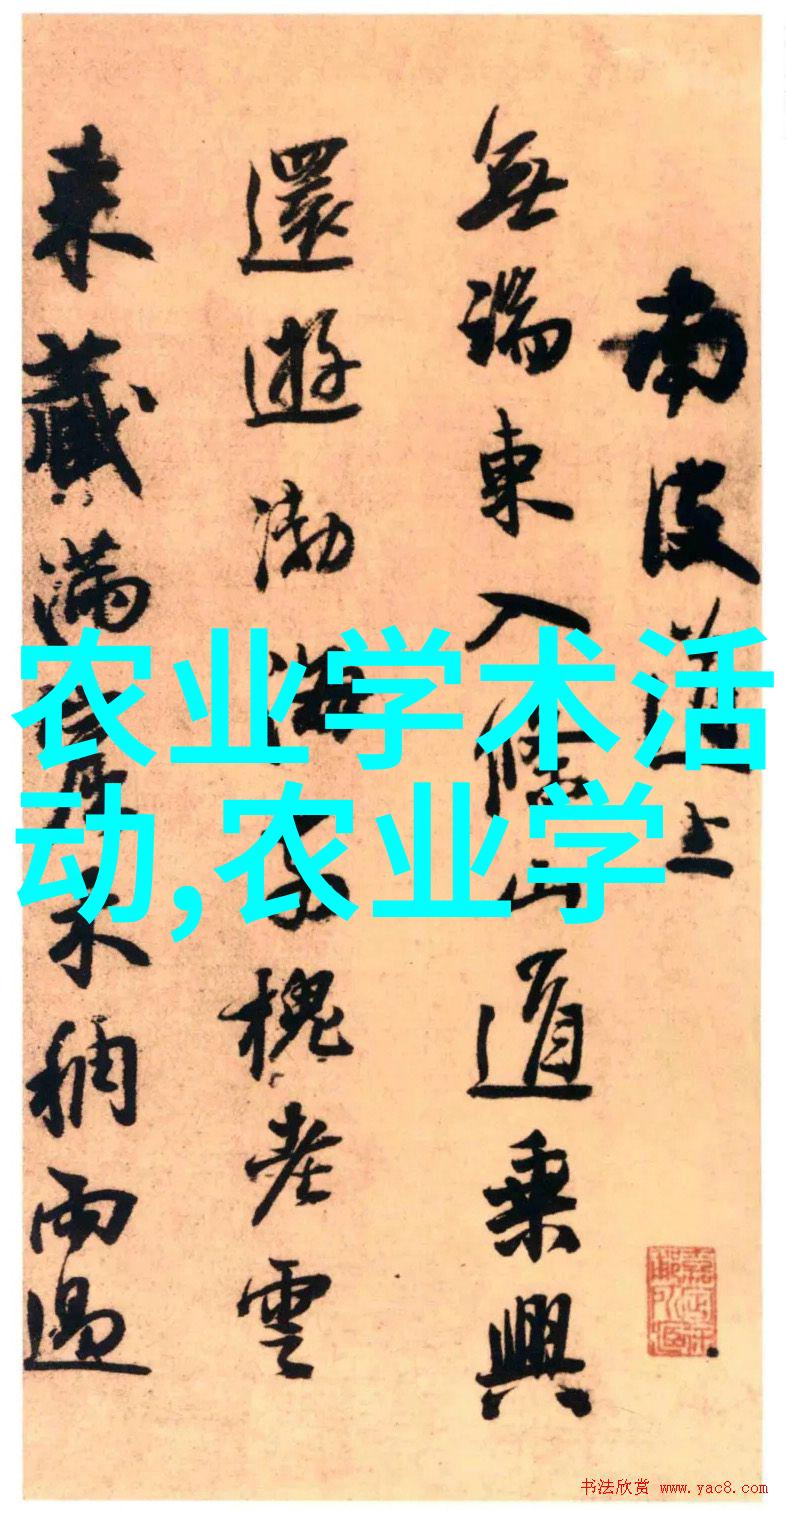 南皮道上
無端東入條山道乘興
還遊渤海槐老雲
來藏滿禾稠雨過
农业学术活
动,农业学
书法欣赏 www.yac8.com